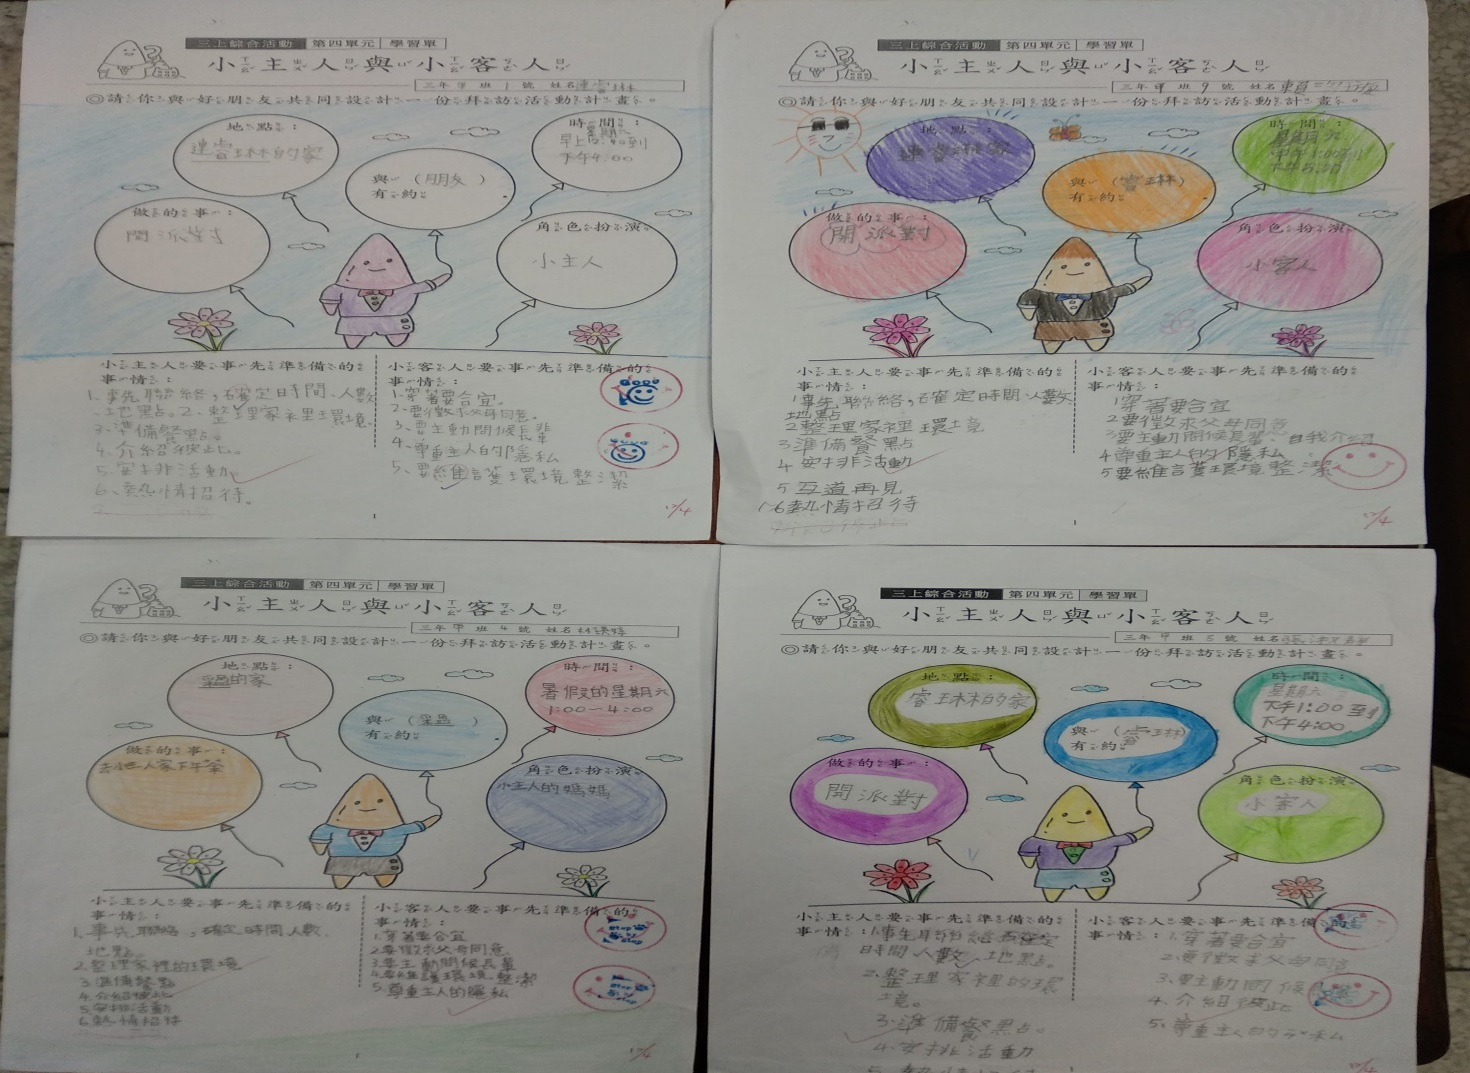 三上綜合活動 第四單元 學習單
小主人與小客人
三年甲班1號 姓名連睿琳
◎請你與好朋友共同設計一份拜訪活動計畫。
地點:
連睿琳的家
時間:
星期六
早上10:00到
下午4:00
與(朋友)
有約
做的事:
開派對
角色扮演:
小主人
小主人要事先準備的
事情:
1.事先聯絡,確定時間、人數
、地點。2、整理家裡環境。
3.準備餐點。
4.介紹彼此。
5.安排活動
6.熱情招待。
小客人要事先準備的
事情:
1.穿著要合宜。
2.要徵求父母同意。
3、要主動問候長輩
4、尊重主人的隱私
5、要維護環境整潔
12/4
三上綜合活動 第四單元 學習單
小主人與小客人
三年甲班9號 姓名賴
◎請你與好朋友共同設計一份拜訪活動計畫。
地點:
連睿琳家
時間:
星期六
下午5:00
與(睿琳)
有約
做的事:
開派對
角色扮演:
小客人
小主人要事先準備的
事情:
1事先聯絡,確定時間、人數
地點
2整理家裡環境
3準備餐點
4安排活動
5互道再見
6熱情招待
小客人要事先準備的
事情:
1穿著要合宜
2要徵求父母同意
3要主動問候長輩、自我介紹
4尊重主人的隱私
5要維護環境整潔
12/4
三上綜合活動 第四單元 學習單
小主人與小客人
三年甲班4號 姓名林
◎請你與好朋友共同設計一份拜訪活動計畫。
地點:
的家
時間:
暑假的星期六
1:00—4:00
與( )
有約
做的事:
去小主人家下午茶
角色扮演:
小主人的媽媽
小主人要事先準備的
事情:
1、事先聯絡,確定時間人數、
地點。
2.整理家裡的環境
3.準備餐點
4.介紹彼此
5.安排活動
6.熱情招待
小客人要事先準備的
事情:
1.穿著要合宜
2.要徵求父母同意
3.要主動問候長輩
4.要維護環境整潔
5.尊重主人的隱私
12/4
三上綜合活動 第四單元 學習單
小主人與小客人
三年甲班5號 姓名
◎請你與好朋友共同設計一份拜訪活動計畫。
地點:
睿琳的家
時間:
星期六
下午1:00到
下午4:00
與(睿琳)
有約
做的事:
開派對
角色扮演:
小客人
小主人要事先準備的
事情:1.事先聯絡確定
時間人數、地點。
2.整理家裡的環
境。
3.準備餐點。
4.安排活動
小客人要事先準備的
事情:
1.穿著要合宜
2.要徵求父母同意
3.要主動問候
4.介紹彼此
5.尊重主人的隱私